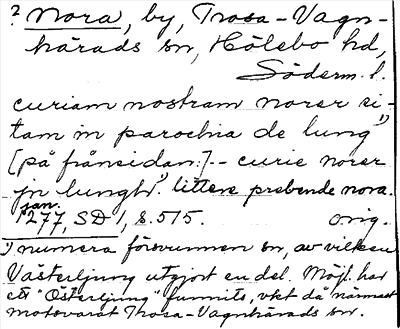 ? Nora, by, Trosa-Vagn-
härads sn, Hölebo hd,
Söderm. l.
curiam nostram norer si-
tam in parochia de lung¹⁾
[på frånsidan:] -- curie norer
jn lungh¹⁾. littere prebende nora.
jan.
1277, SD 1, s. 515. orig.
¹⁾ numera försvunnen sn, av vilken
Västerljung utgjort en del. Möjl. har
ett "Österljung" funnits, vkt då närmast
motsvarat Trosa-Vagnhärads sn.